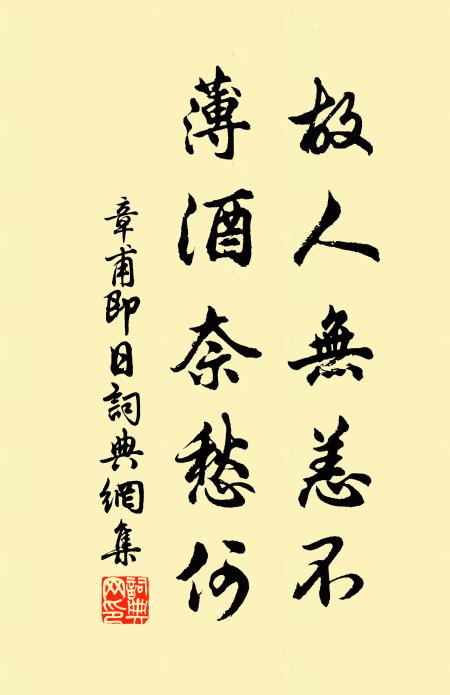 故人無恙不
薄酒奈愁何
章甫即日詞典網集
詞典網印